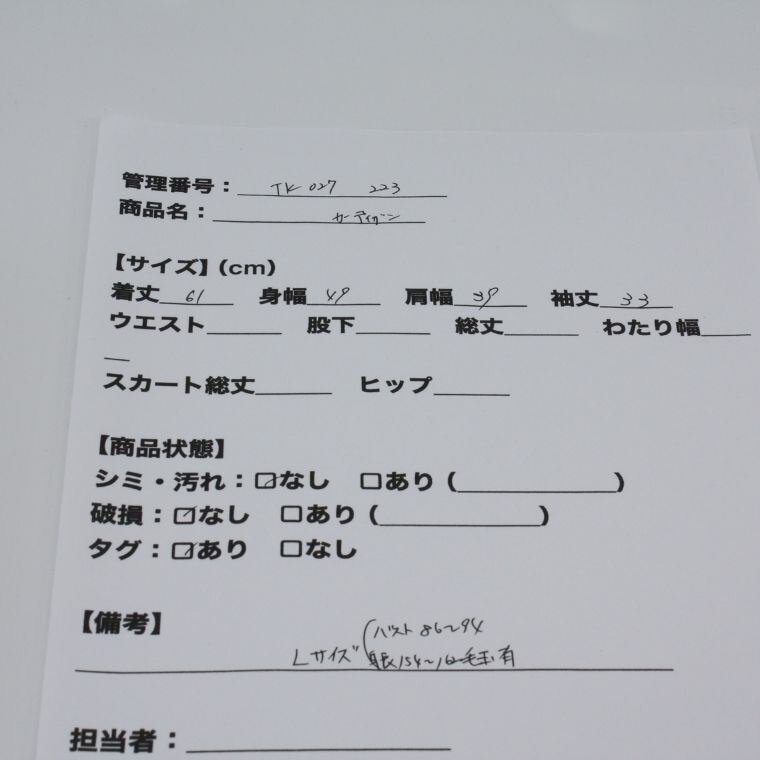 管理番号：TK 027 223
商品名：カーディガン
【サイズ】(cm)
着丈 61 身幅 49 肩幅 39 袖丈 33
ウエスト______ 股下______ 総丈______ わたり幅____
__
スカート総丈______ ヒップ______
【商品状態】
シミ・汚れ：☑なし □あり (____________)
破損：☑なし □あり (____________)
タグ：☑あり □なし
【備考】
バスト 86~94
Lサイズ 身長154~162 毛玉有
担当者：____________________